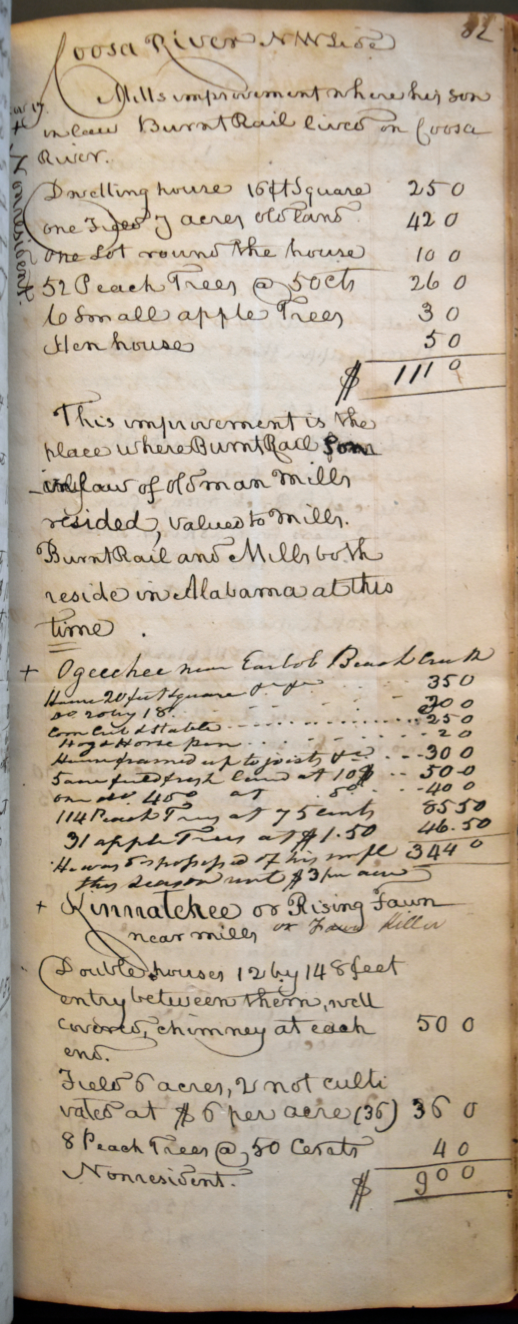 82
Coosa River N W Side
Mills improvement where his son
in law Burnt Rail lived on Coosa
River.
Nonresident.
Dwelling house 16 ft Square 25 0
one Field 7 acres old land 42 0
One Lot round the house 10 0
52 Peach Trees @ 50 cts 26 0
6 Small apple Trees 3 0
Hen house 5 0
$ 111 0
This improvement is the
place where Burnt Rail Son
in law of old man Mills
resided, valued to Mills.
Burnt Rail and Mills both
reside in Alabama at this
time.
+ Ogeechee near Earbob
House 20 feet Square &c &c 35 0
Do 20 by 18 0
Corn Crib & Stable 25 0
Hog & Horse pen 2 0
House framed up to joists &c 30 0
5 acre field fresh land at 10$ 50 0
one do 40 0
114 Peach Trees at 75 cents 85 50
31 apple Trees at $1.50 46.50
344 0
He was dispossessed of his
this Season rent $3 per acre
+ Kinnatehee or Rising Fawn
near mills or Fawn Killer
Double houses 12 by 14 8 feet
entry between them, well
covered, chimney at each 50 0
end.
Field 6 acres, 2 not culti
vated at $6 per acre (36) 36 0
8 Peach Trees @ 50 Cents 4 0
Nonresident. $ 90 0